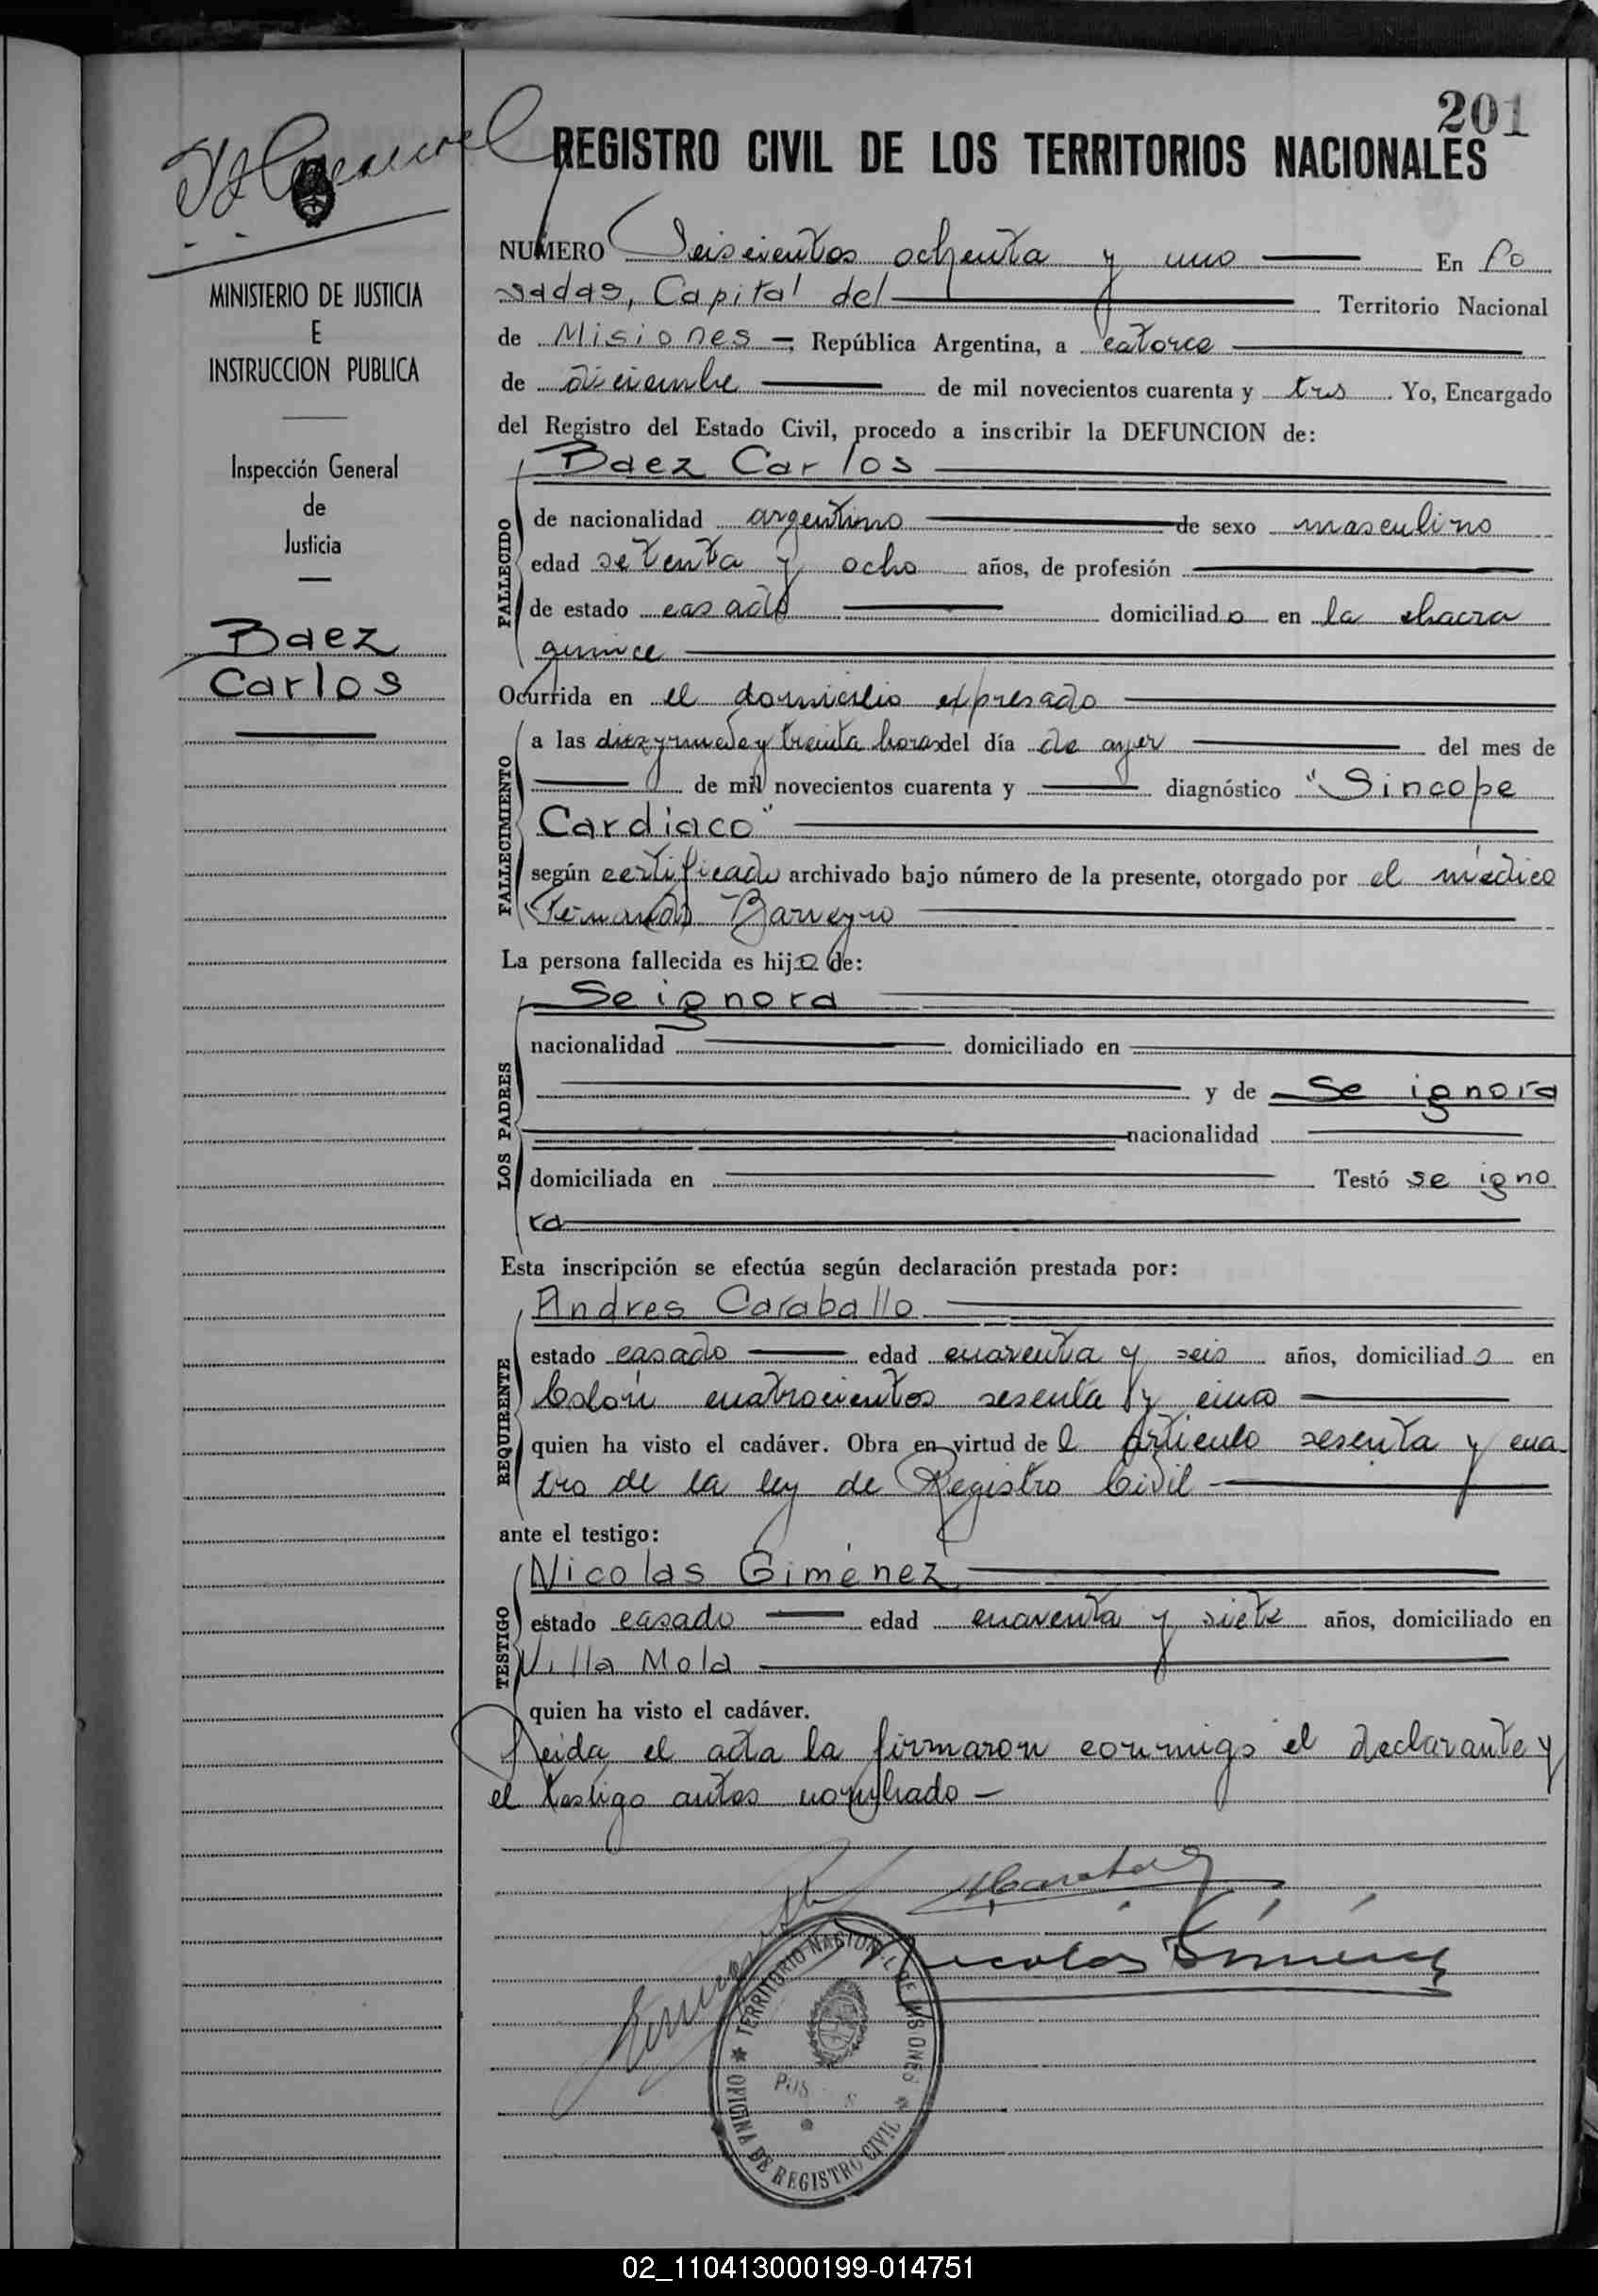 201
REGISTRO CIVIL DE LOS TERRITORIOS NACIONALES
MINISTERIO DE JUSTICIA
E
INSTRUCCION PUBLICA
Inspección General
de
Justicia
Baez
Carlos
NUMERO Seiscientos ochenta y uno En Po
sadas, Capital del Territorio Nacional
de Misiones, República Argentina, a catorce
de diciembre de mil novecientos cuarenta y tres Yo, Encargado
del Registro del Estado Civil, procedo a inscribir la DEFUNCION de:
Baez Carlos
FALLECIDO
de nacionalidad argentino de sexo masculino
edad setenta y ocho años, de profesión
de estado casado domiciliado en la chacra
quince
Ocurrida en el domicilio expresado
FALLECIMIENTO
a las diez y nueve y treinta horas del día de ayer del mes de
de mil novecientos cuarenta y diagnóstico "Sincope
Cardiaco"
según certificado archivado bajo número de la presente, otorgado por el médico
Fernando Barreyro
La persona fallecida es hijo de:
LOS PADRES
Se ignora
nacionalidad domiciliado en
y de Se ignora
nacionalidad
domiciliada en Testó se igno
ra
Esta inscripción se efectúa según declaración prestada por:
REQUIRENTE
Andres Caraballo
estado casado edad cuarenta y seis años, domiciliado en
Colón cuatrocientos sesenta y cinco
quien ha visto el cadáver. Obra en virtud del artículo sesenta y cua
tro de la ley de Registro Civil
ante el testigo:
TESTIGO
Nicolas Giménez
estado casado edad cuarenta y siete años, domiciliado en
Villa Mola
quien ha visto el cadáver.
Leida el acta la firmaron conmigo el declarante y
el testigo antes nombrado
Nicolás Giménez
TERRITORIO NACIONAL DE MISIONES
OFICINA DE REGISTRO CIVIL
02_110413000199-014751